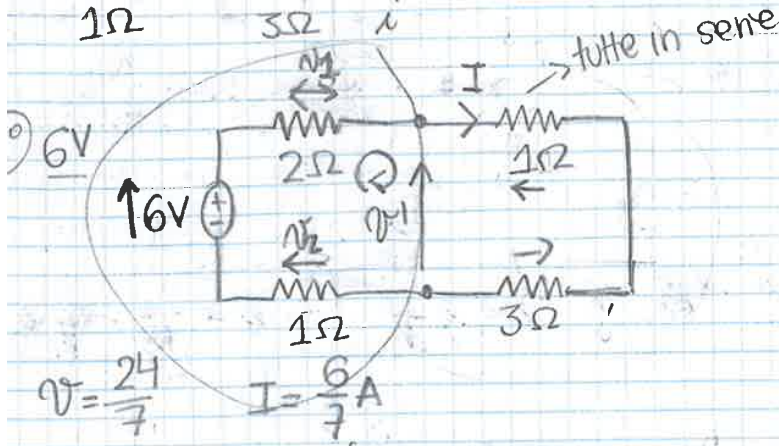 1Ω 3Ω i
tutte in serie
v1 I
6V
2Ω 1Ω
6V + -
v'
v2
1Ω 3Ω
v = 24/7 I = 6/7 A